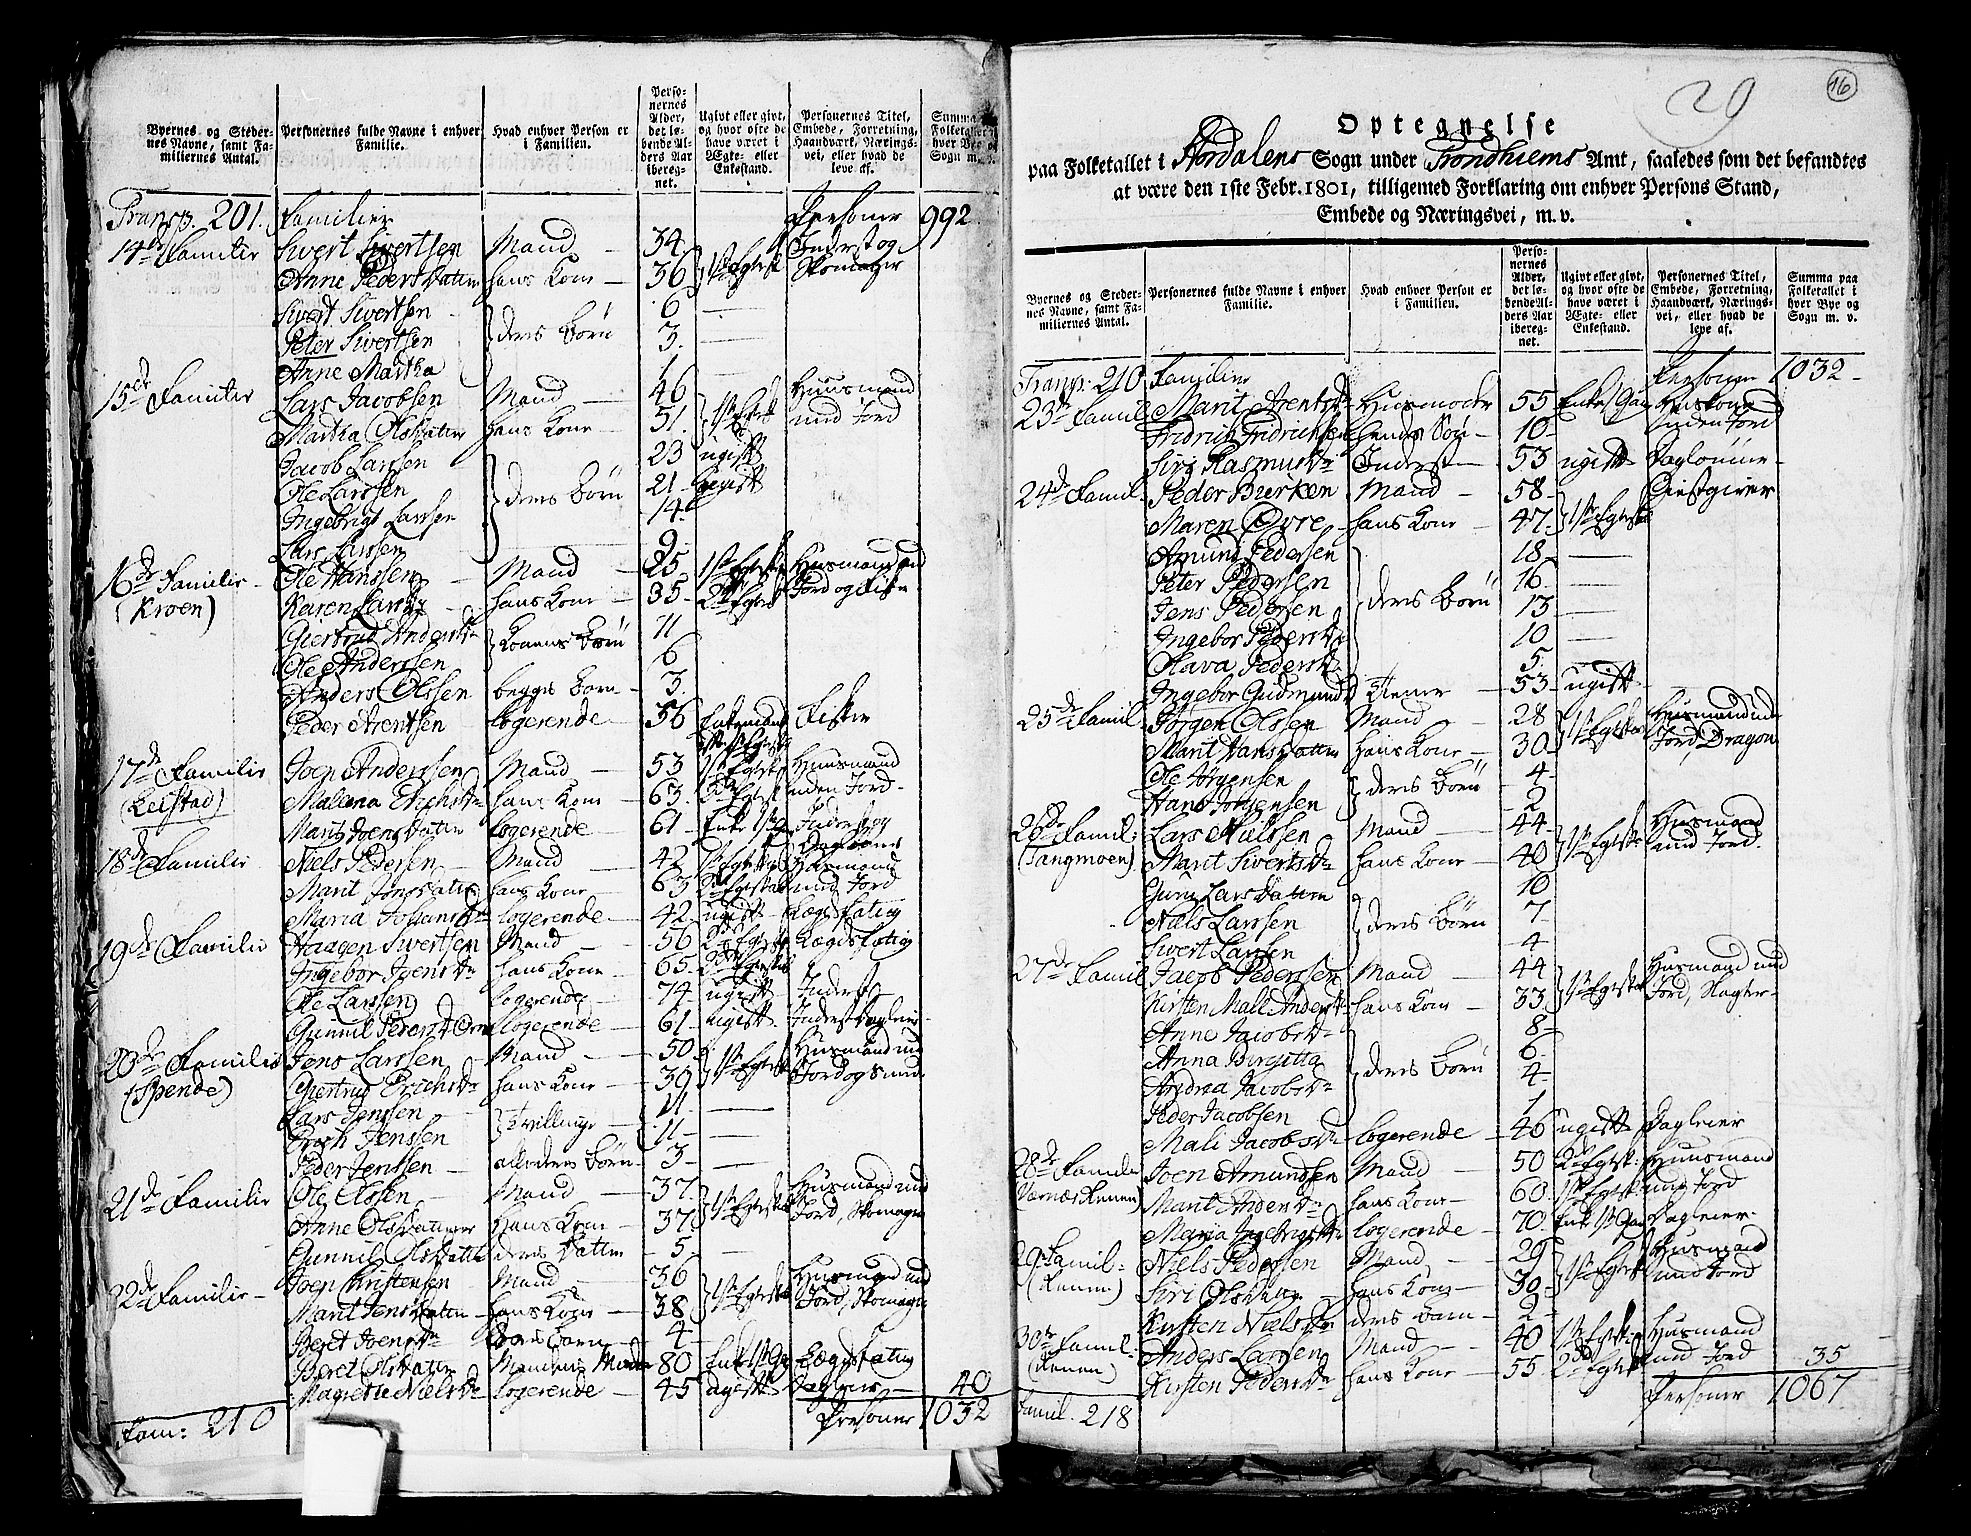 Byernes og Steder-
nes Navne, samt Fa-
miliernes Antal.
Personernes fulde Navne i enhver
Familie.
Hvad enhver Person er
i Familien.
Perso-
nernes
Alder,
det le-
bende Al-
ders Aar
ibereg-
net.
Ugivt eller givt,
og hvor ofte de
have været i
Ægte- eller
Enkestand.
Personernes Titel,
Embede, Forretning,
Haandværk, Nærings-
vei, eller hvad de
leve af.
Summa
Folketallet
hver Bye
Sogn m. v.
Transp. 201. Familier Personer 992
14de Familie Siwert Siwertsen Mand 34 1ste Egtesk Inderst og
Anne Pedersdatter hans Kone 36 Skomager
Siwert Siwertsen 6
Peter Siwertsen deres Börn 3
Anne Martha 1
15de Familie Lars Jacobsen Mand 46 1ste Egtesk Huusmand
Martha Olsdatter hans Kone 51 med Jord
Jacob Larssen 23 ugift
Ole Larssen deres Börn 21 ugift
Ingebrigt Larssen 14
Lars Larssen 9
16de Familie Ole Hanssen Mand 25 1ste Egtesk Husmand med
(Kroen) Karen Larsdr hans Kone 35 2det Egtesk Jord og Fisker
Giertrud Andersdr Konens Börn 11
Ole Anderssen 6
Anders Olssen begges Barn 3
Peder Arentsen logerende 56 Enkemand Fisker
17de Familie Joen Anderssen Mand 53 1ste Egtesk Huusmand
(Leistad) Malena Erichsdr hans Kone 63 2det Egtesk uden Jord
Marit Joensdatter logerende 61 Enke Inderst og
18de Familie Niels Pedersen Mand 42 1ste Egtesk Husmand
Marit Jonsdatter hans Kone 63 2det Egtesk med Jord
Maria Johansdr logerende 42 ugift Lægdsfattig
19de Familie Haagen Siwertsen Mand 56 2det Egtesk Lægdsfattig
Ingebor Joensdr hans Kone 65 Egtesk
Ole Larssen logerende 74 ugift Inderst
Gunnil Pedersd logerende 61 ugift Inderst Dagleier
20de Familie Jens Larssen Mand 50 1ste Egtesk Husmand med
(Spende) Giertrud Erichsdr hans Kone 39 Jord og Smed
Lars Jenssen tvillinge 11
Erich Jenssen 11
Peder Jenssen alle deres Börn 3
21de Familie Ole Olssen Mand 37 1ste Egtesk Husmand med
Anne Olsdatter hans Kone 37 Jord, Skomager
Gunnil Olsdatter deres datter 5
22de Familie Joen Christensen Mand 36 1ste Egtesk Husmand med
Marit Jensdatter hans Kone 38 Jord, Skomager
Beret Joensdr deres Barn 4
Beret Olsdatter Mandens Moder 80 Enke 1ste G Lægdsfattig
Magrete Nielsdr logerende 45 ugift Dagleier 40
Fam: 210 Personer 1032
29
16
Optegnelse
paa Folketallet i Stördalens Sogn under Trondhiems Amt, saaledes som det befandtes
at være den 1ste Febr. 1801, tilligemed Forklaring om enhver Persons Stand,
Embede og Næringsvei, m. v.
Byernes og Steder-
nes Navne, samt Fa-
miliernes Antal.
Personernes fulde Navne i enhver
Familie.
Hvad enhver Person er
i Familien.
Perso-
nernes
Alder,
det le-
bende Al-
ders Aar
ibereg-
net.
Ugivt eller givt,
og hvor ofte de
have været i
Ægte- eller
Enkestand.
Personernes Titel,
Embede, Forretning,
Haandværk, Nærings-
vei, eller hvad de
leve af.
Summa paa
Folketallet i
hver Bye og
Sogn m. v.
Transp. 210 Familier Personer 1032
23de Famil Marit Arentsdr Husmoder 55 Enke Huskone
Fridrich Fridrichsen hendes Sön 10 uden Jord
Siri Rasmusdr Inderst 53 ugift
24de Famil Peder Buerken Mand 58 1ste Egtesk Giestgiver
Maren Øvre hans Kone 47
Amund Pedersen 18
Peter Pedersen 16
Jens Pedersen deres Börn 13
Ingebor Pedersdr 10
Olava Pedersdr 5
Ingebor Gudmundsd tiener 53 ugift
25de Famil Jörgen Olssen Mand 28 1ste Egtesk Husmand uden
Marit Hansdatter hans Kone 30 Jord, Dragon
Ole Jörgensen deres Börn 4
Hans Jörgensen 2
26de Famil: Lars Nielssen Mand 44 1ste Egtesk Husmand
(Tangmoen) Marit Siwertsdr hans Kone 40 med Jord
Guru Larsdatter 10
Niels Larssen deres Börn 7
Siwert Larssen 4
27de Famil Jacob Pederssen Mand 44 1ste Egtesk Husmand med
Kirsten Mall Andersdr hans Kone 33 Jord, Slagter
Anne Jacobsdr 8
Anna Birgitta deres Börn 6
Andrea Jacobsdr 4
Peder Jacobsen 1
Mali Jacobsdr logerende 46 ugift Dagleier
28de Familie Joen Amundssen Mand 50 2det Egtesk: Huusmand
Marit Andersdr hans Kone 60 1ste Egtesk med Jord
Maria Ingebrigtsdr logerende 70 Enke 1ste Gang Dagleier
29de Famil: Niels Pederssen Mand 29 1ste Egtesk Husmand
(Renen) Siri Olsdatter hans Kone 30 med Jord
Kirsten Nielsdr deres Barn 2
30te Famil: Anders Larssen Mand 40 1ste Egtesk: Husmand
(Renen) Kirsten Pedersdr hans Kone 55 2det Egtesk med Jord 35
Famil. 218 Personer 1067